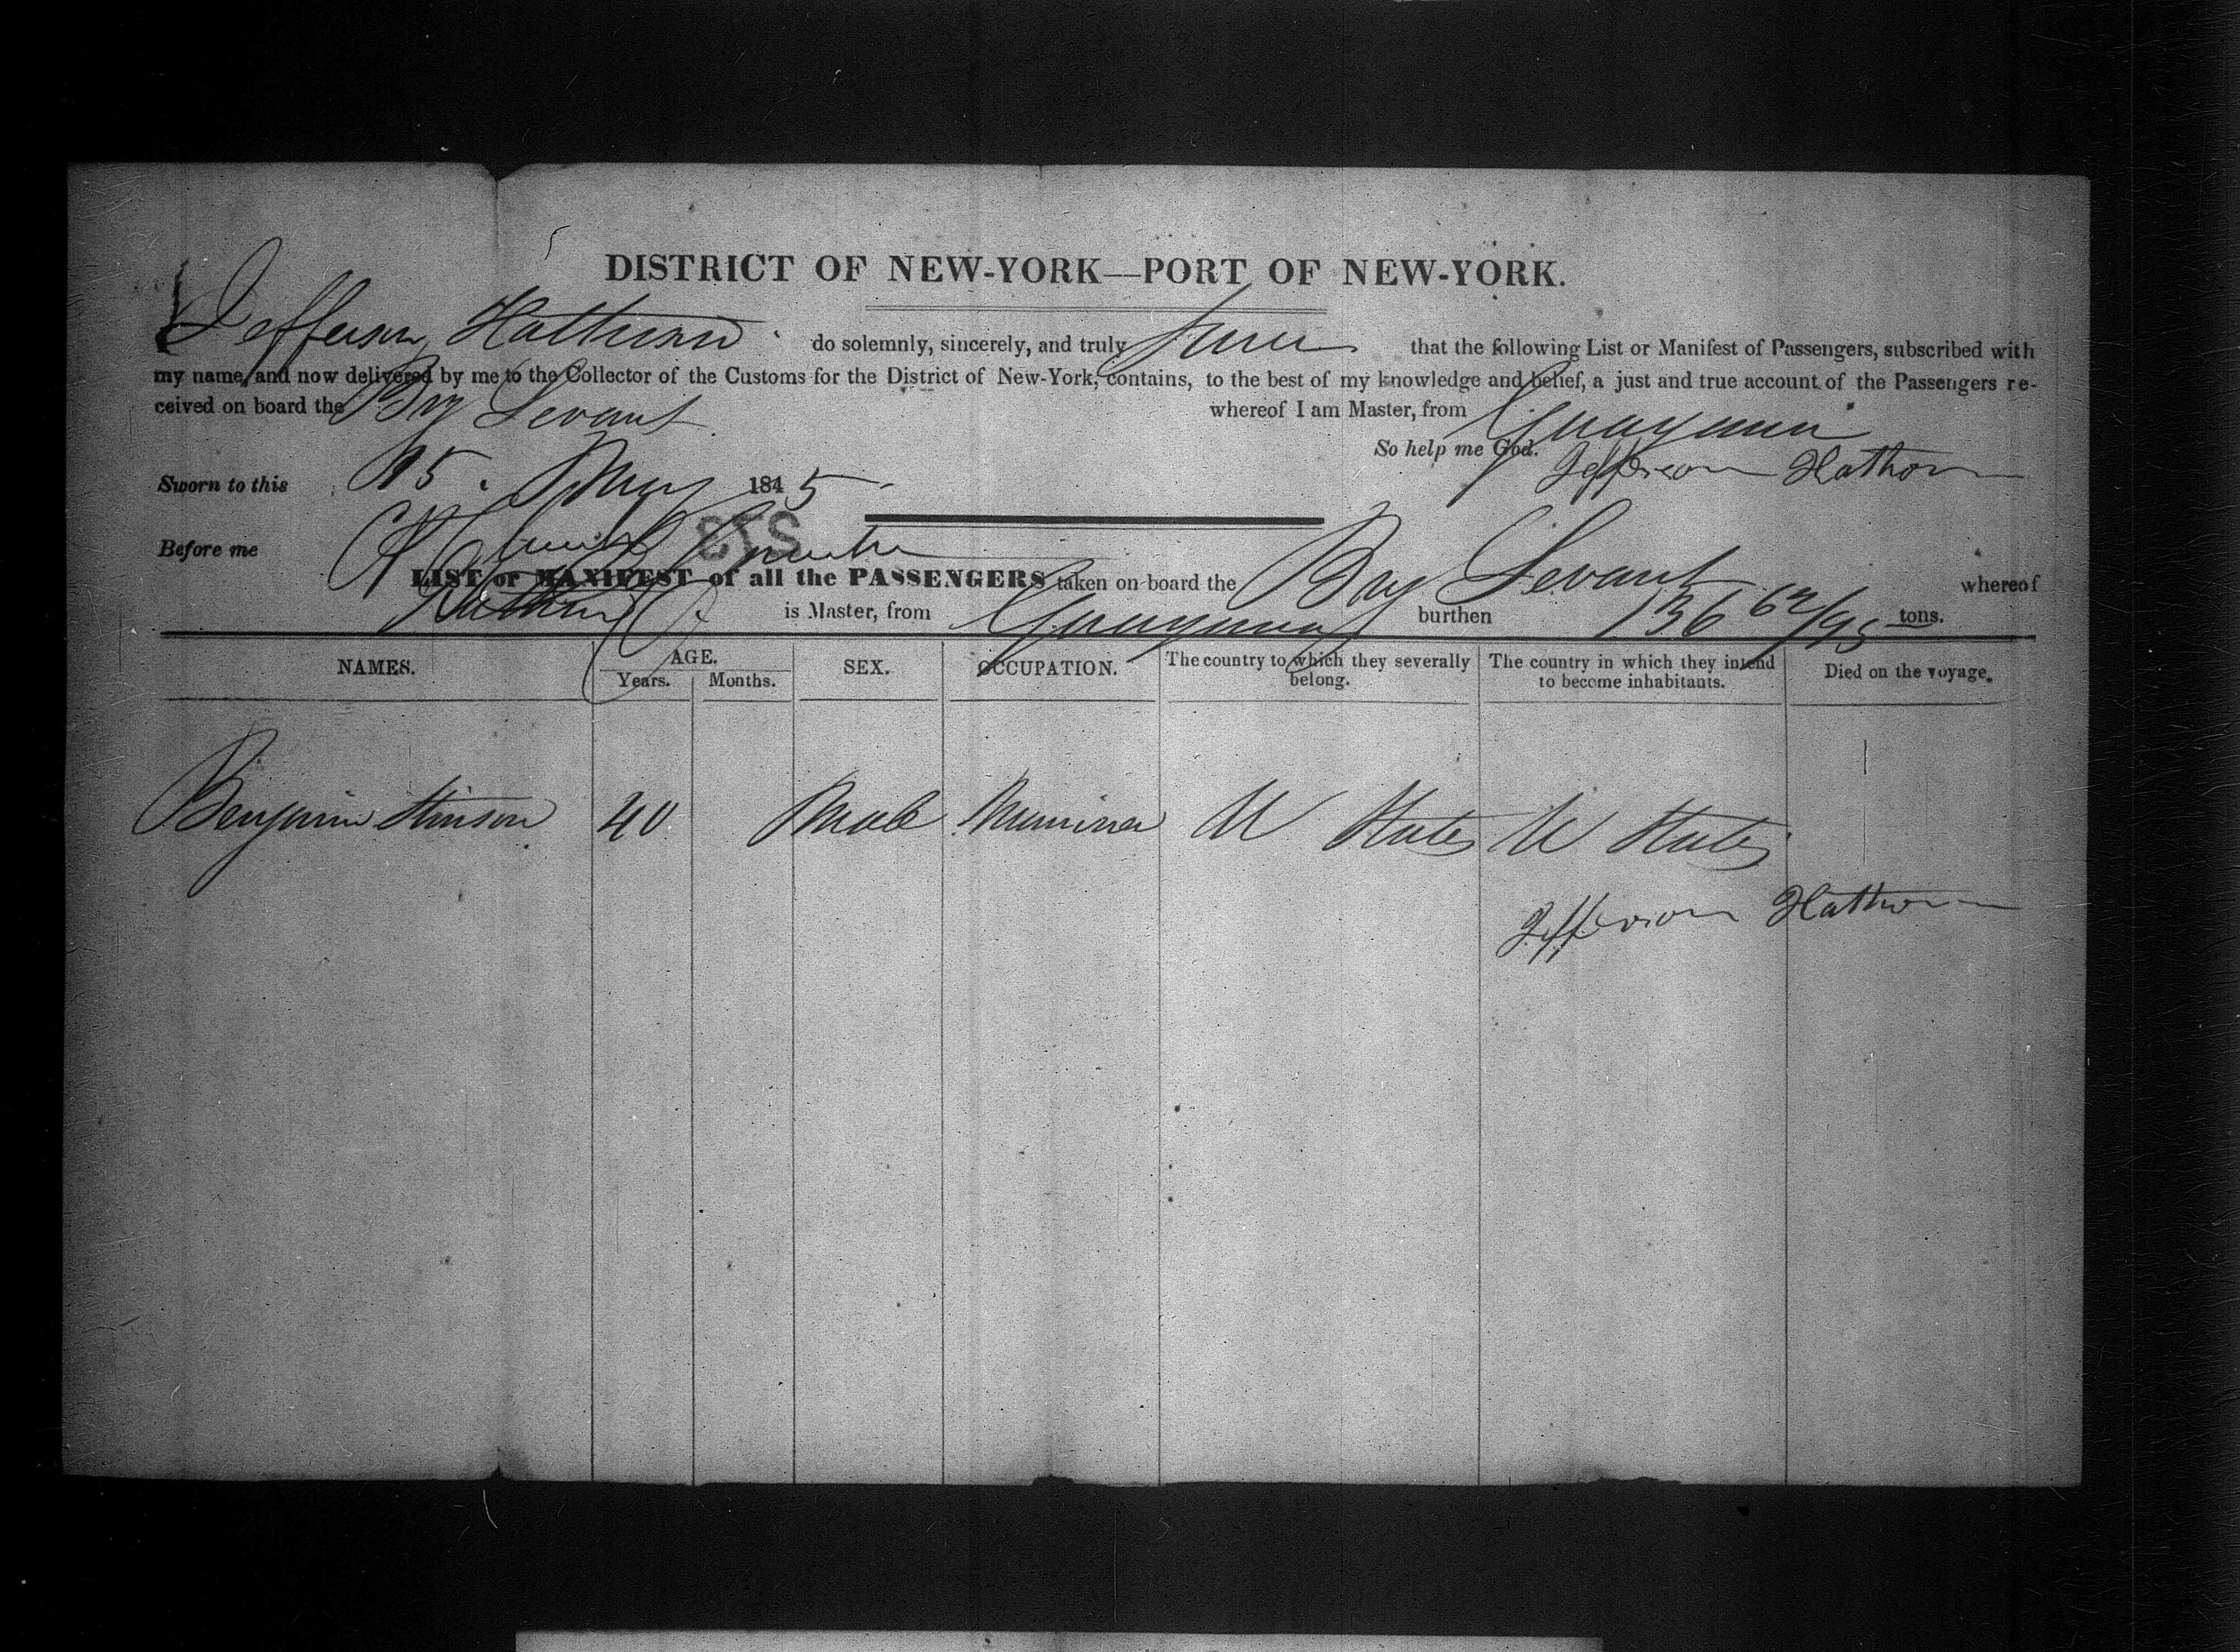 DISTRICT OF NEW-YORK—PORT OF NEW-YORK.
I Jefferson Hathorn do solemnly, sincerely, and truly swear that the following List or Manifest of Passengers, subscribed with
my name, and now delivered by me to the Collector of the Customs for the District of New-York, contains, to the best of my knowledge and belief, a just and true account of the Passengers re-
ceived on board the Brig Levant whereof I am Master, from Guayama
So help me God.
Jefferson Hathorn
Sworn to this 15. May 1845.
Before me
LIST or MANIFEST of all the PASSENGERS taken on board the Brig Levant whereof
Hathorn is Master, from Guayama burthen 136 62/95 tons.
NAMES. AGE. SEX. OCCUPATION. The country to which they severally belong. The country in which they intend to become inhabitants. Died on the voyage.
Years. Months.
Benjamin Stinson 40 Male Mariner U States U States
Jefferson Hathorn